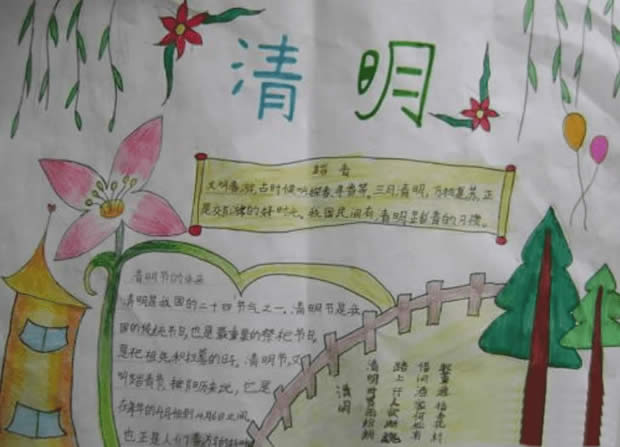 清明
踏青
又叫春游，古时候叫探春、寻春等。三月清明，万物复苏，正
是郊游的好时光。我国民间有清明踏青的习惯。
清明节的由来
清明是我国的二十四节气之一，清明节是我
国的传统节日，也是最重要的祭祀节日，
是祀祖先和扫墓的日子。清明节，又
叫踏青节，按阳历来说，它是
在每年的4月4日到4月6日之间，
也正是人们春游的好时
清明
清明时节雨纷纷
路上行人欲断魂
借问酒家何处有
牧童遥指杏花村